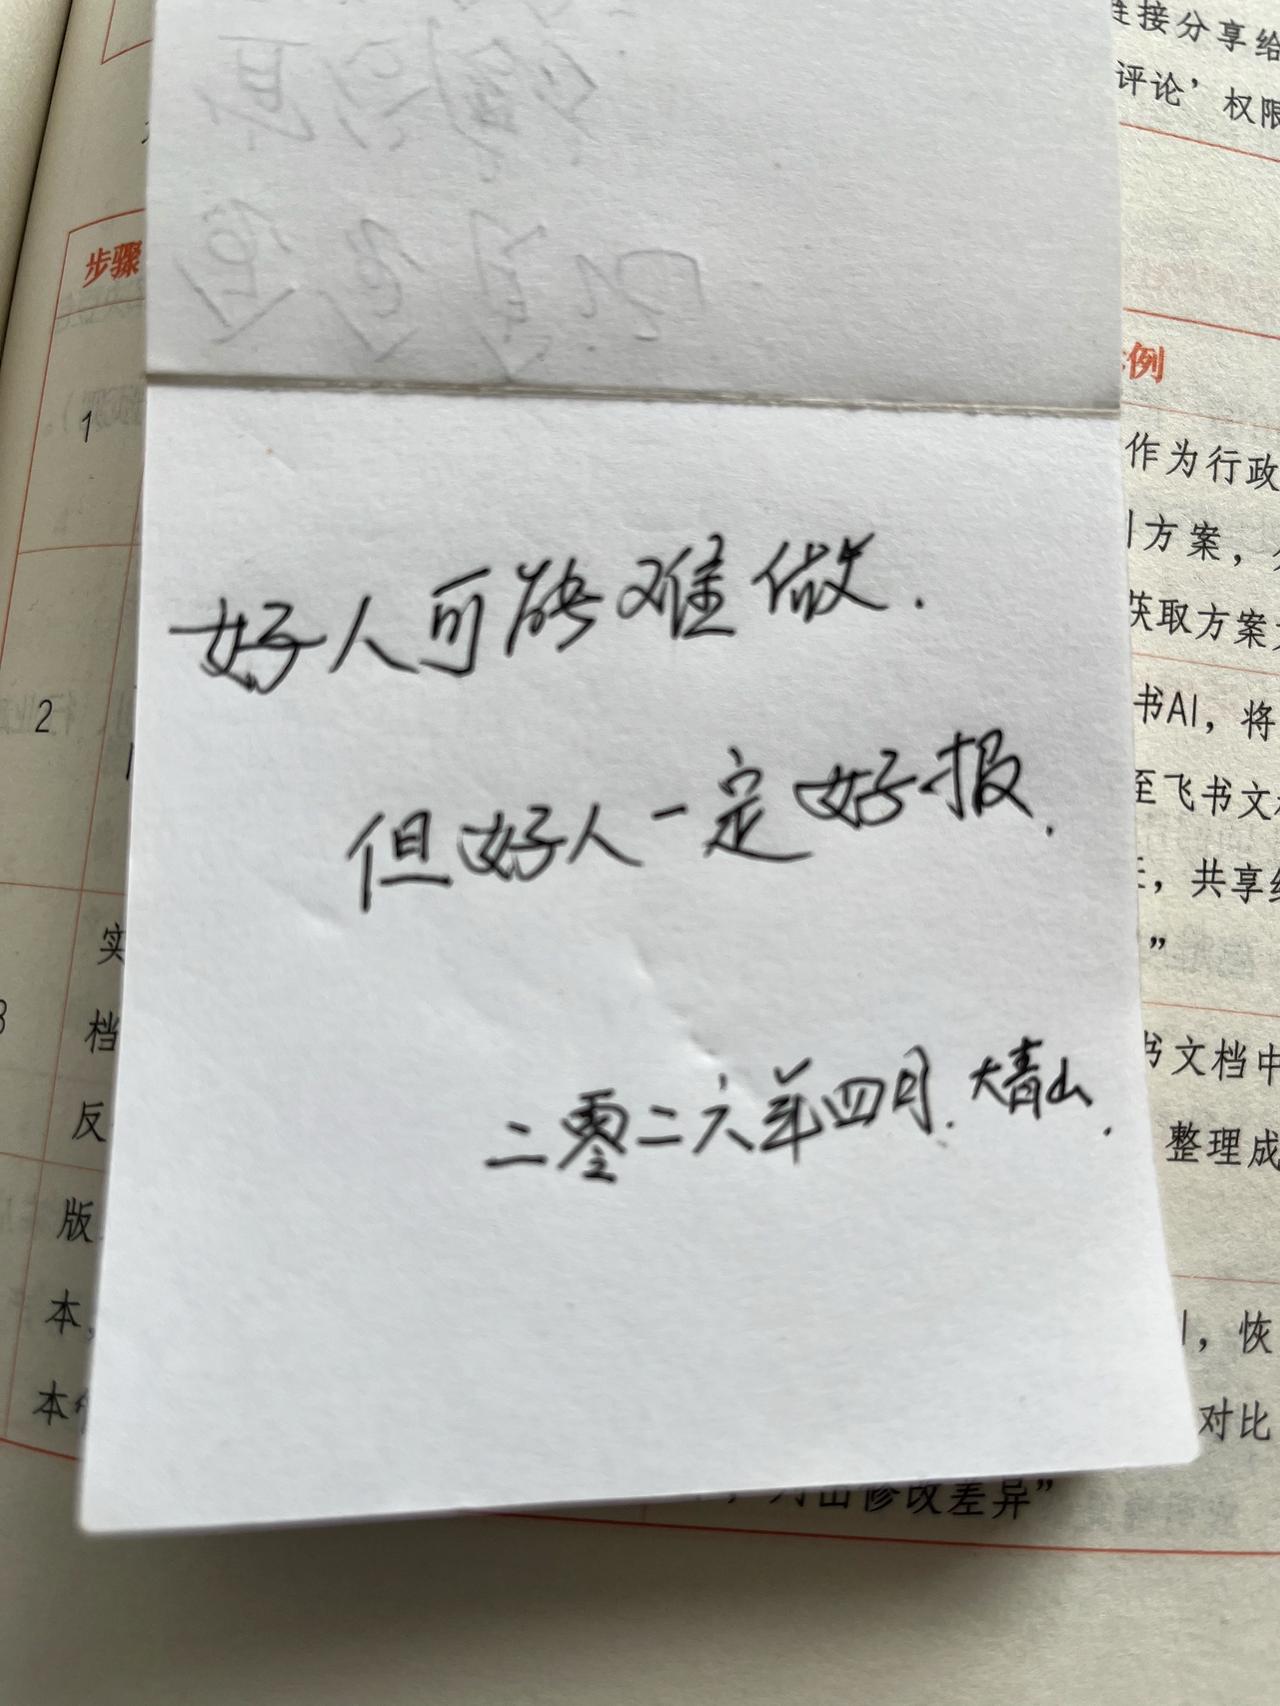 接分享给
评论’权限
步骤
例
1
作为行政
方案，
获取方案
好人可能难做.
2
书AI，将
但好人一定好报.
至飞书文
，共享给
”
实
3
档
书文档中
二零二六年四月.大青山.
反
整理成
版
本，
，恢
本
对比
修改差异”